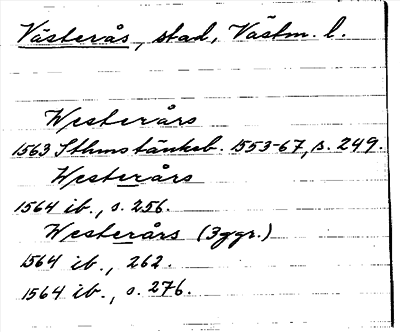 Västerås, stad, Västm. l.
Westerårs
1563 Sthms tänkeb. 1553-67, s. 249.
Westerårs
1564 ib., s. 256.
Westerårs (3 ggr.)
1564 ib., 262.
1564 ib., s. 276.